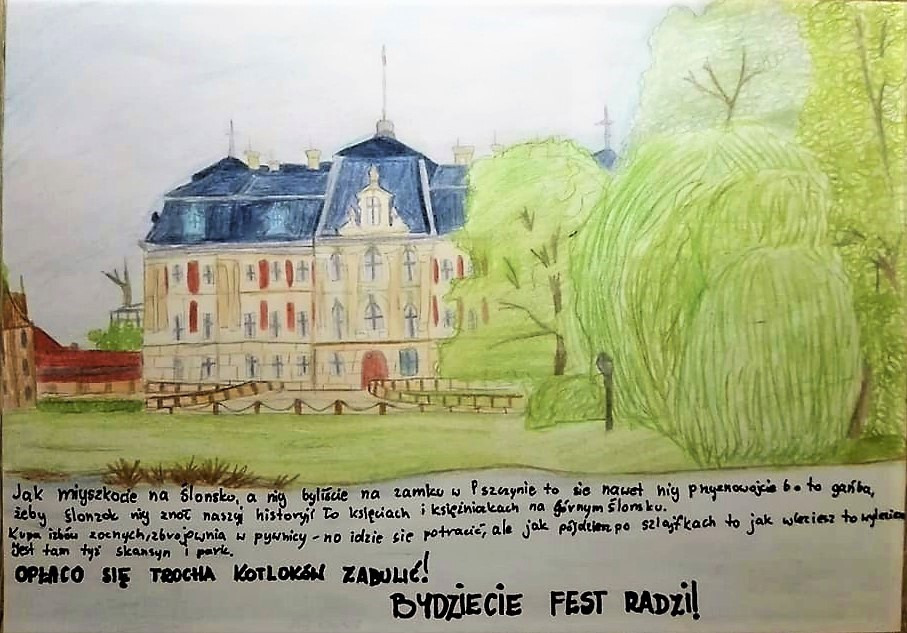 Jak miyszkocie na Ślonsku, a niy byliście na zamku w Pszczynie to sie nawet niy przyznowejcie bo to gańba,
żeby Ślonzok niy znoł naszyj historyji to ksiynciach i ksiynżniakach na Górnym Ślonsku.
Kupa izbów zocnych, zbrojownia w pywnicy - no idzie sie potracić, ale jak pójdziem po szlajfkach to jak wleziesz to wyleziesz
Jest tam tyż skansyn i park.
OPŁACO SIĘ TROCHA KOTLOKÓW ZABULIĆ!
BYDZIECIE FEST RADZI!